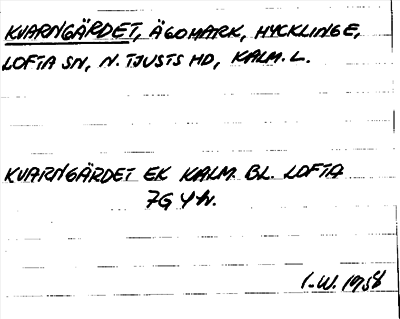 KVARNGÄRDET, ÄGOMARK, HYCKLINGE,
LOFTA SN, N. TJUSTS HD, KALM. L.
KVARNGÄRDET EK KALM. BL. LOFTA
7G 4 h.
I.-W. 1958